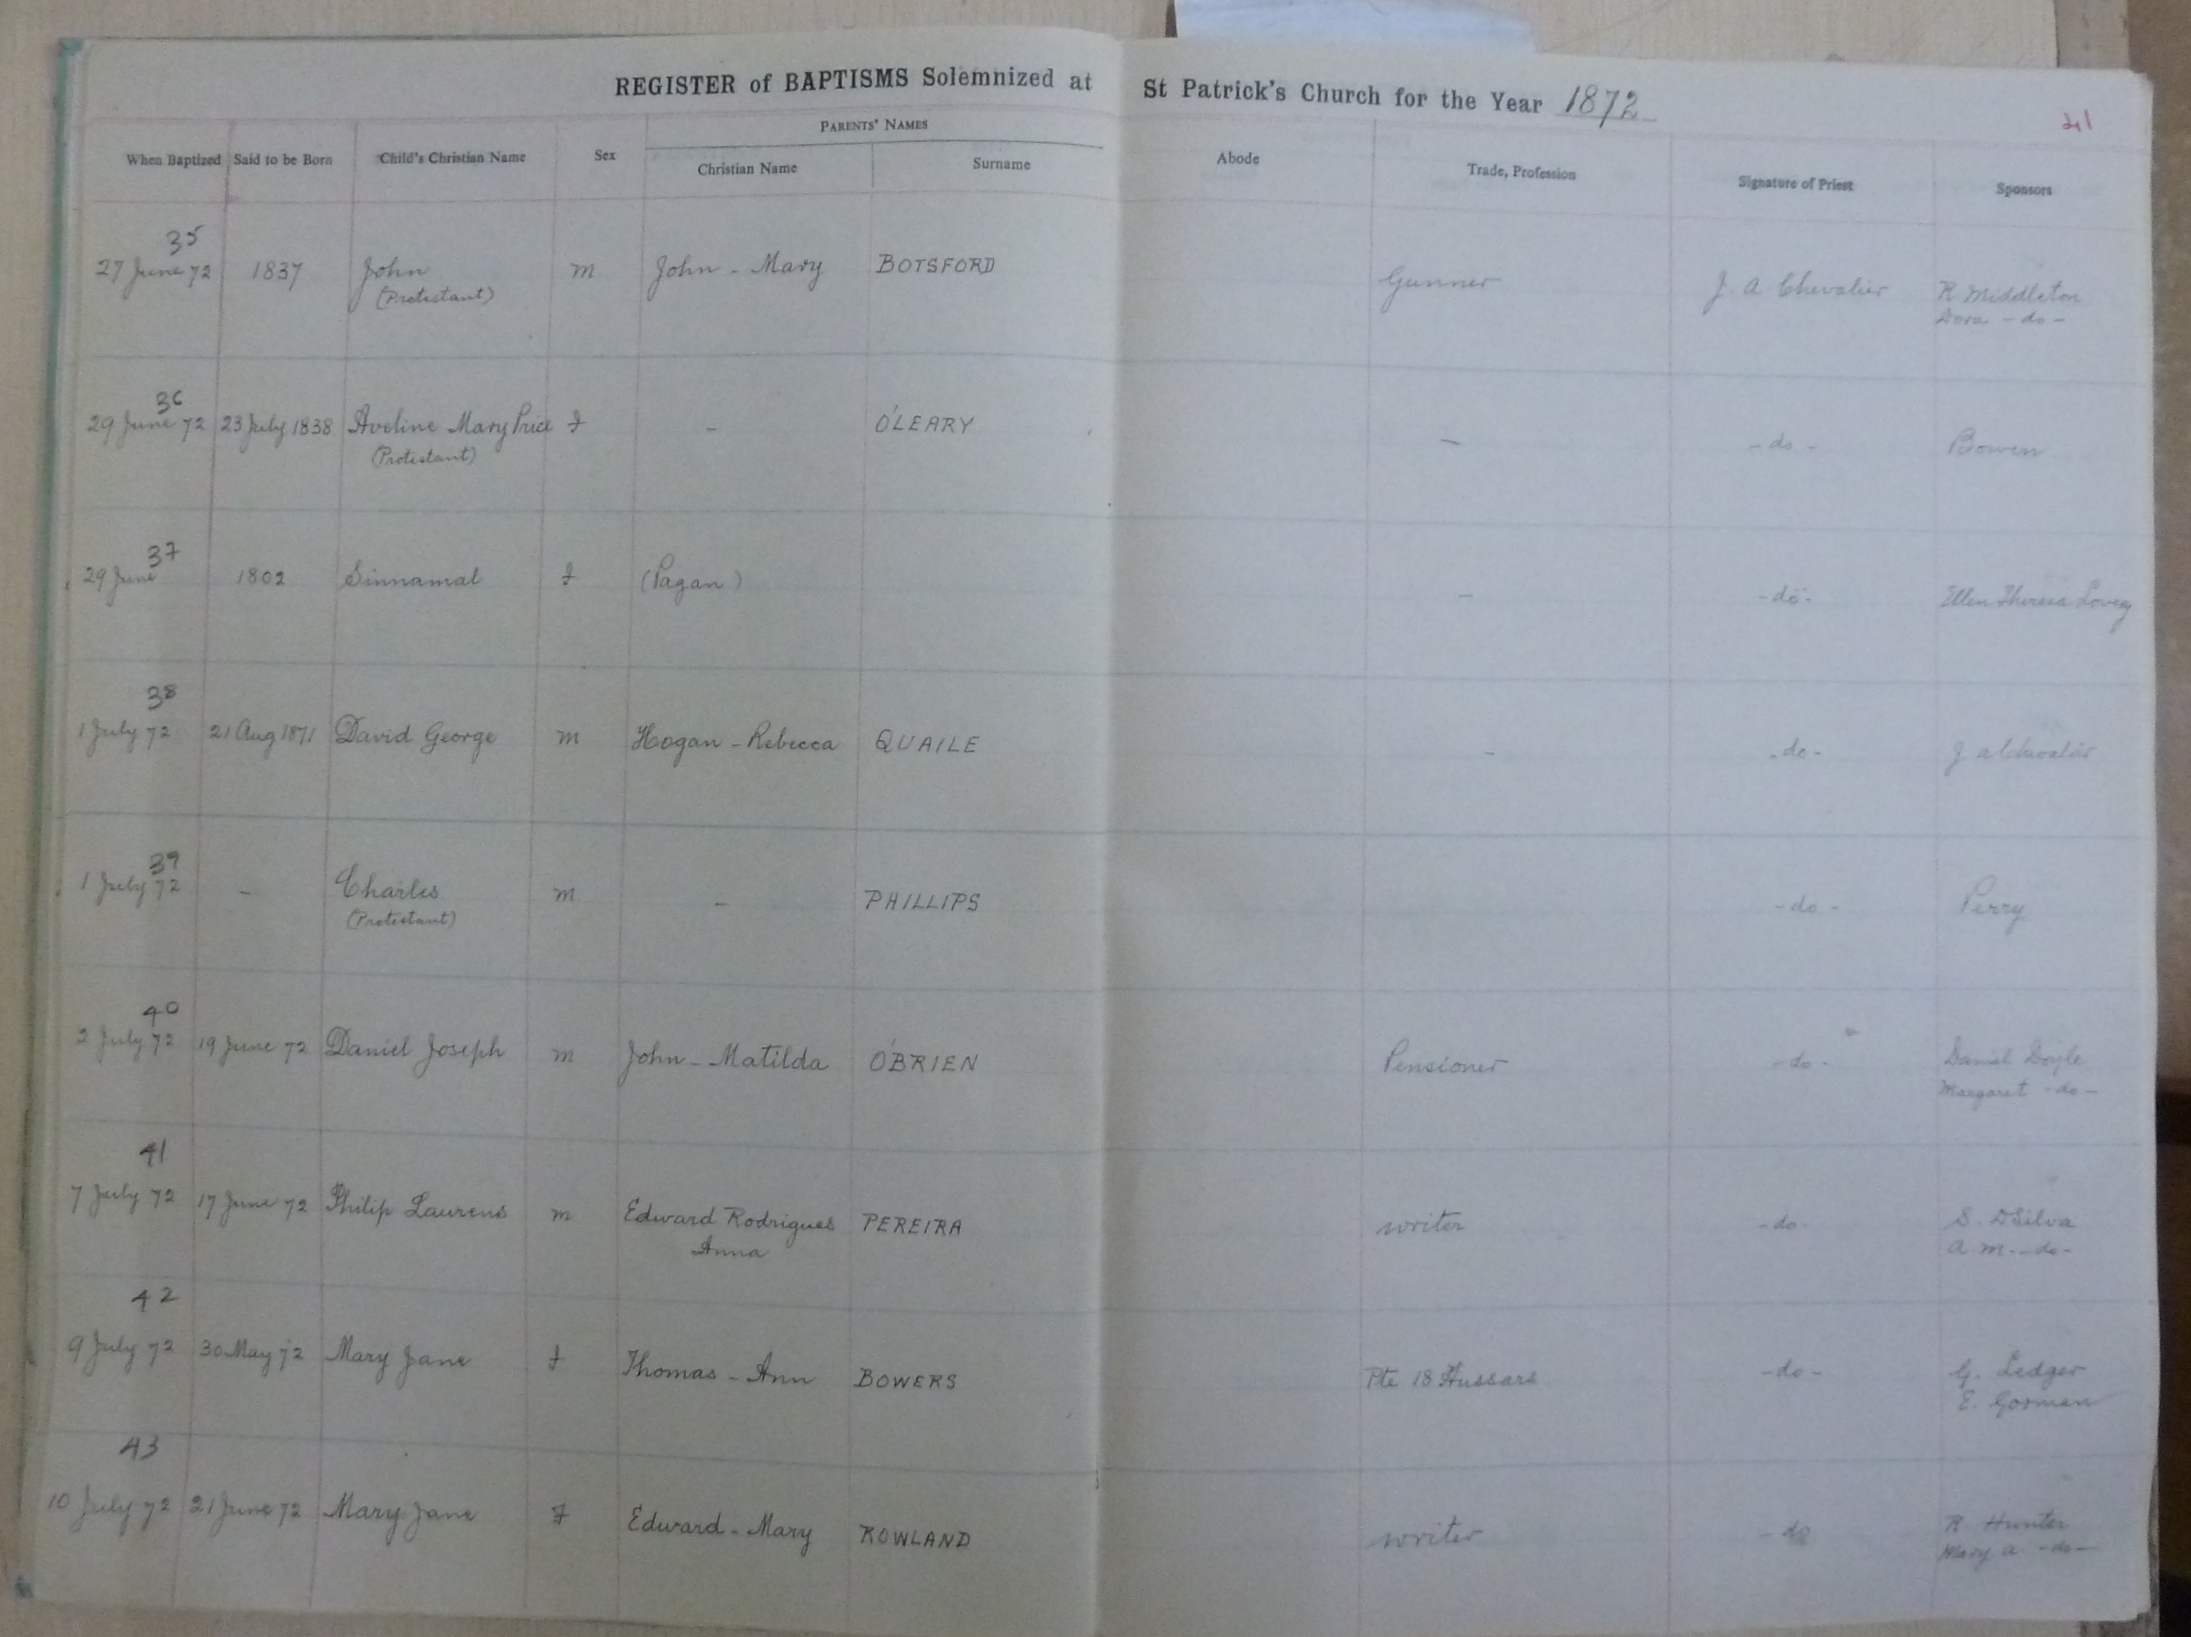 REGISTER of BAPTISMS Solemnized at St Patrick's Church for the Year 1872
41
PARENTS' NAMES
When Baptized Said to be Born Child's Christian Name Sex Christian Name Surname Abode Trade, Profession Signature of Priest Sponsors
35
27 June 72 1837 John m John - Mary BOTSFORD Gunner J A Chevalier R Middleton
(Protestant) Dora - do -
36
29 June 72 23 July 1838 Aveline Mary Price F - O'LEARY - - do - Bowen
(Protestant)
37
29 June 1802 Sinnamal F (Pagan) - - do - Ellen Theresa Lovery
38
1 July 72 21 Aug 1871 David George m Hogan - Rebecca QUAILE - - do - J A Chevalier
39
1 July 72 - Charles m - PHILLIPS - do - Perry
(Protestant)
40
2 July 72 19 June 72 Daniel Joseph m John - Matilda O'BRIEN Pensioner - do - Daniel Doyle
Margaret - do -
41
7 July 72 17 June 72 Philip Laurens m Edward Rodrigues PEREIRA writer - do - S. DSilva
Anna A. M. - do -
42
9 July 72 30 May 72 Mary Jane F Thomas - Ann BOWERS Pte 18 Hussars - do - G. Ledger
E. Gorman
43
10 July 72 21 June 72 Mary Jane F Edward - Mary ROWLAND writer - do R. Hunter
Mary A - do -